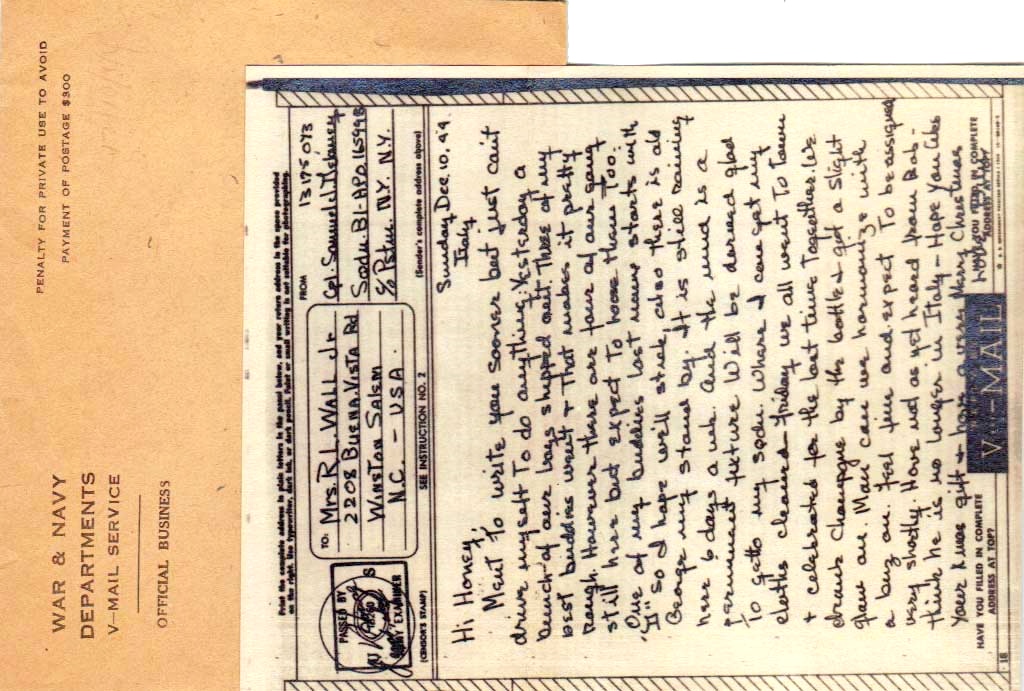 PENALTY FOR PRIVATE USE TO AVOID
PAYMENT OF POSTAGE $300
WAR & NAVY
DEPARTMENTS
V-MAIL SERVICE
OFFICIAL BUSINESS
Print the complete address in plain letters in the panel below, and your return address in the space provided
on the right. Use typewriter, dark ink, or dark pencil. Faint or small writing is not suitable for photographing.
PASSED BY
U S
ARMY EXAMINER
(CENSOR'S STAMP)
TO:
Mrs. R.L. WALL Jr
2208 BUENA.VISTA Rd
WINSTON SALEM
N.C. - USA.
SEE INSTRUCTION NO. 2
FROM
13175073
Cpl. Samuel J.
Sqdn. B1. APO. 16599B
c/o Pstm. N.Y. N.Y.
(Sender's complete address above)
Sunday Dec. 10, 44.
Italy
Hi Honey;
Meant To write you sooner but just can't
drive myself To do anything. Yesterday a
bunch of our boys shipped out. Three of my
best buddies went + That makes it pretty
rough. However there are four of our gang
still here but expect To loose them Too.
One of my buddies last name starts with
"I" so I hope we'll stick, also there is old
George my stand by. It is still raining
here 6 days a wk. and the mud is a
permanent fixture. Will be darned glad
To get to my sqdn. where I can get my
cloths cleaned. Friday we all went To Town
+ celebrated for the last time Together. We
drank Champagne by the bottle + got a slight
glow on. Man can we harmonize with
a buzz on. Feel fine and expect To be assigned
very shortly. Have not as yet heard from Bob -
think he is no longer in Italy - Hope you like
your Xmas gift + have a very Merry Christmas
HAVE YOU FILLED IN COMPLETE
ADDRESS AT TOP?
V-MAIL
HAVE YOU FILLED IN COMPLETE
ADDRESS AT TOP?
18